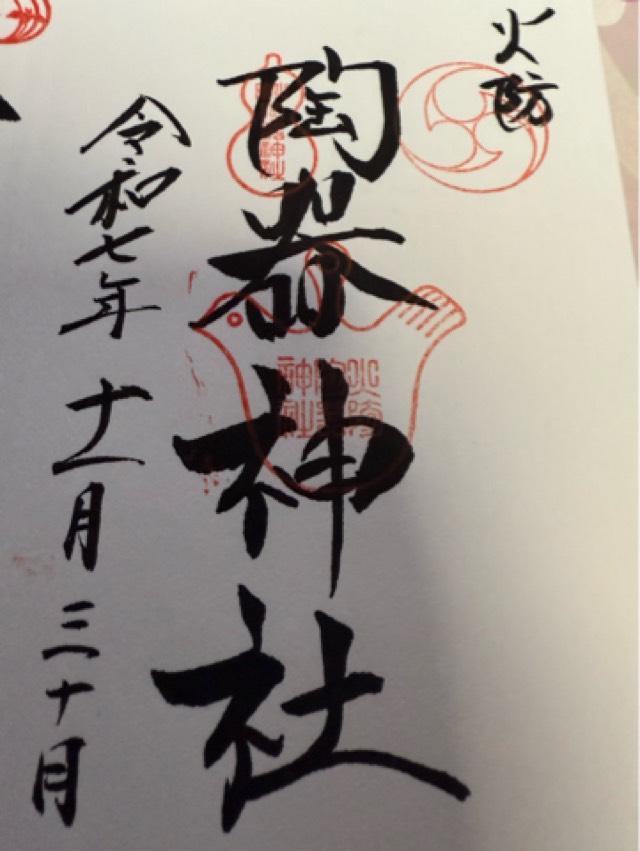 火防
陶器神社
火防
陶器
神社
令和七年 十一月 三十月